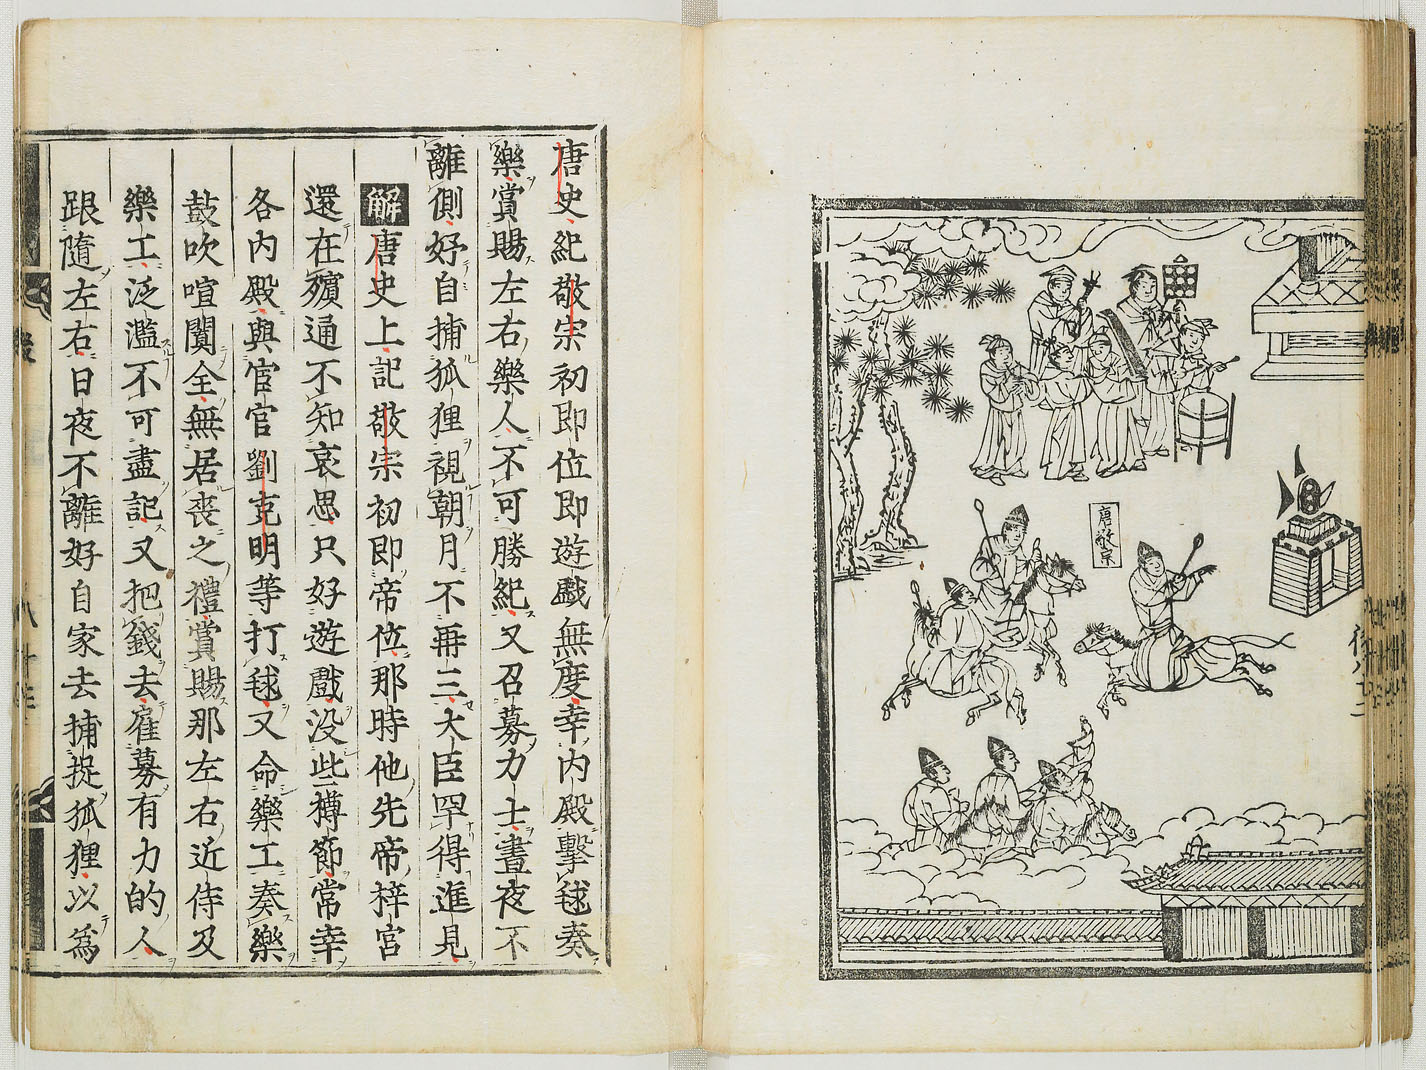 唐敬宗
後八十二
唐史紀敬宗初即位即遊戲無度幸內殿擊毬奏
樂賞賜左右樂人不可勝紀又召募力士晝夜不
離側好自捕狐狸視朝月不再三大臣罕得進見
解唐史上記敬宗初即帝位那時他先帝梓宮
還在殯通不知哀思只好遊戲没些樽節常幸
各內殿與宦官劉克明等打毬又命樂工奏樂
鼓吹喧闐全無居喪之禮賞賜那左右近侍及
樂工泛濫不可盡記又把錢去雇募有力的人
跟隨左右日夜不離好自家去捕捉狐狸以為